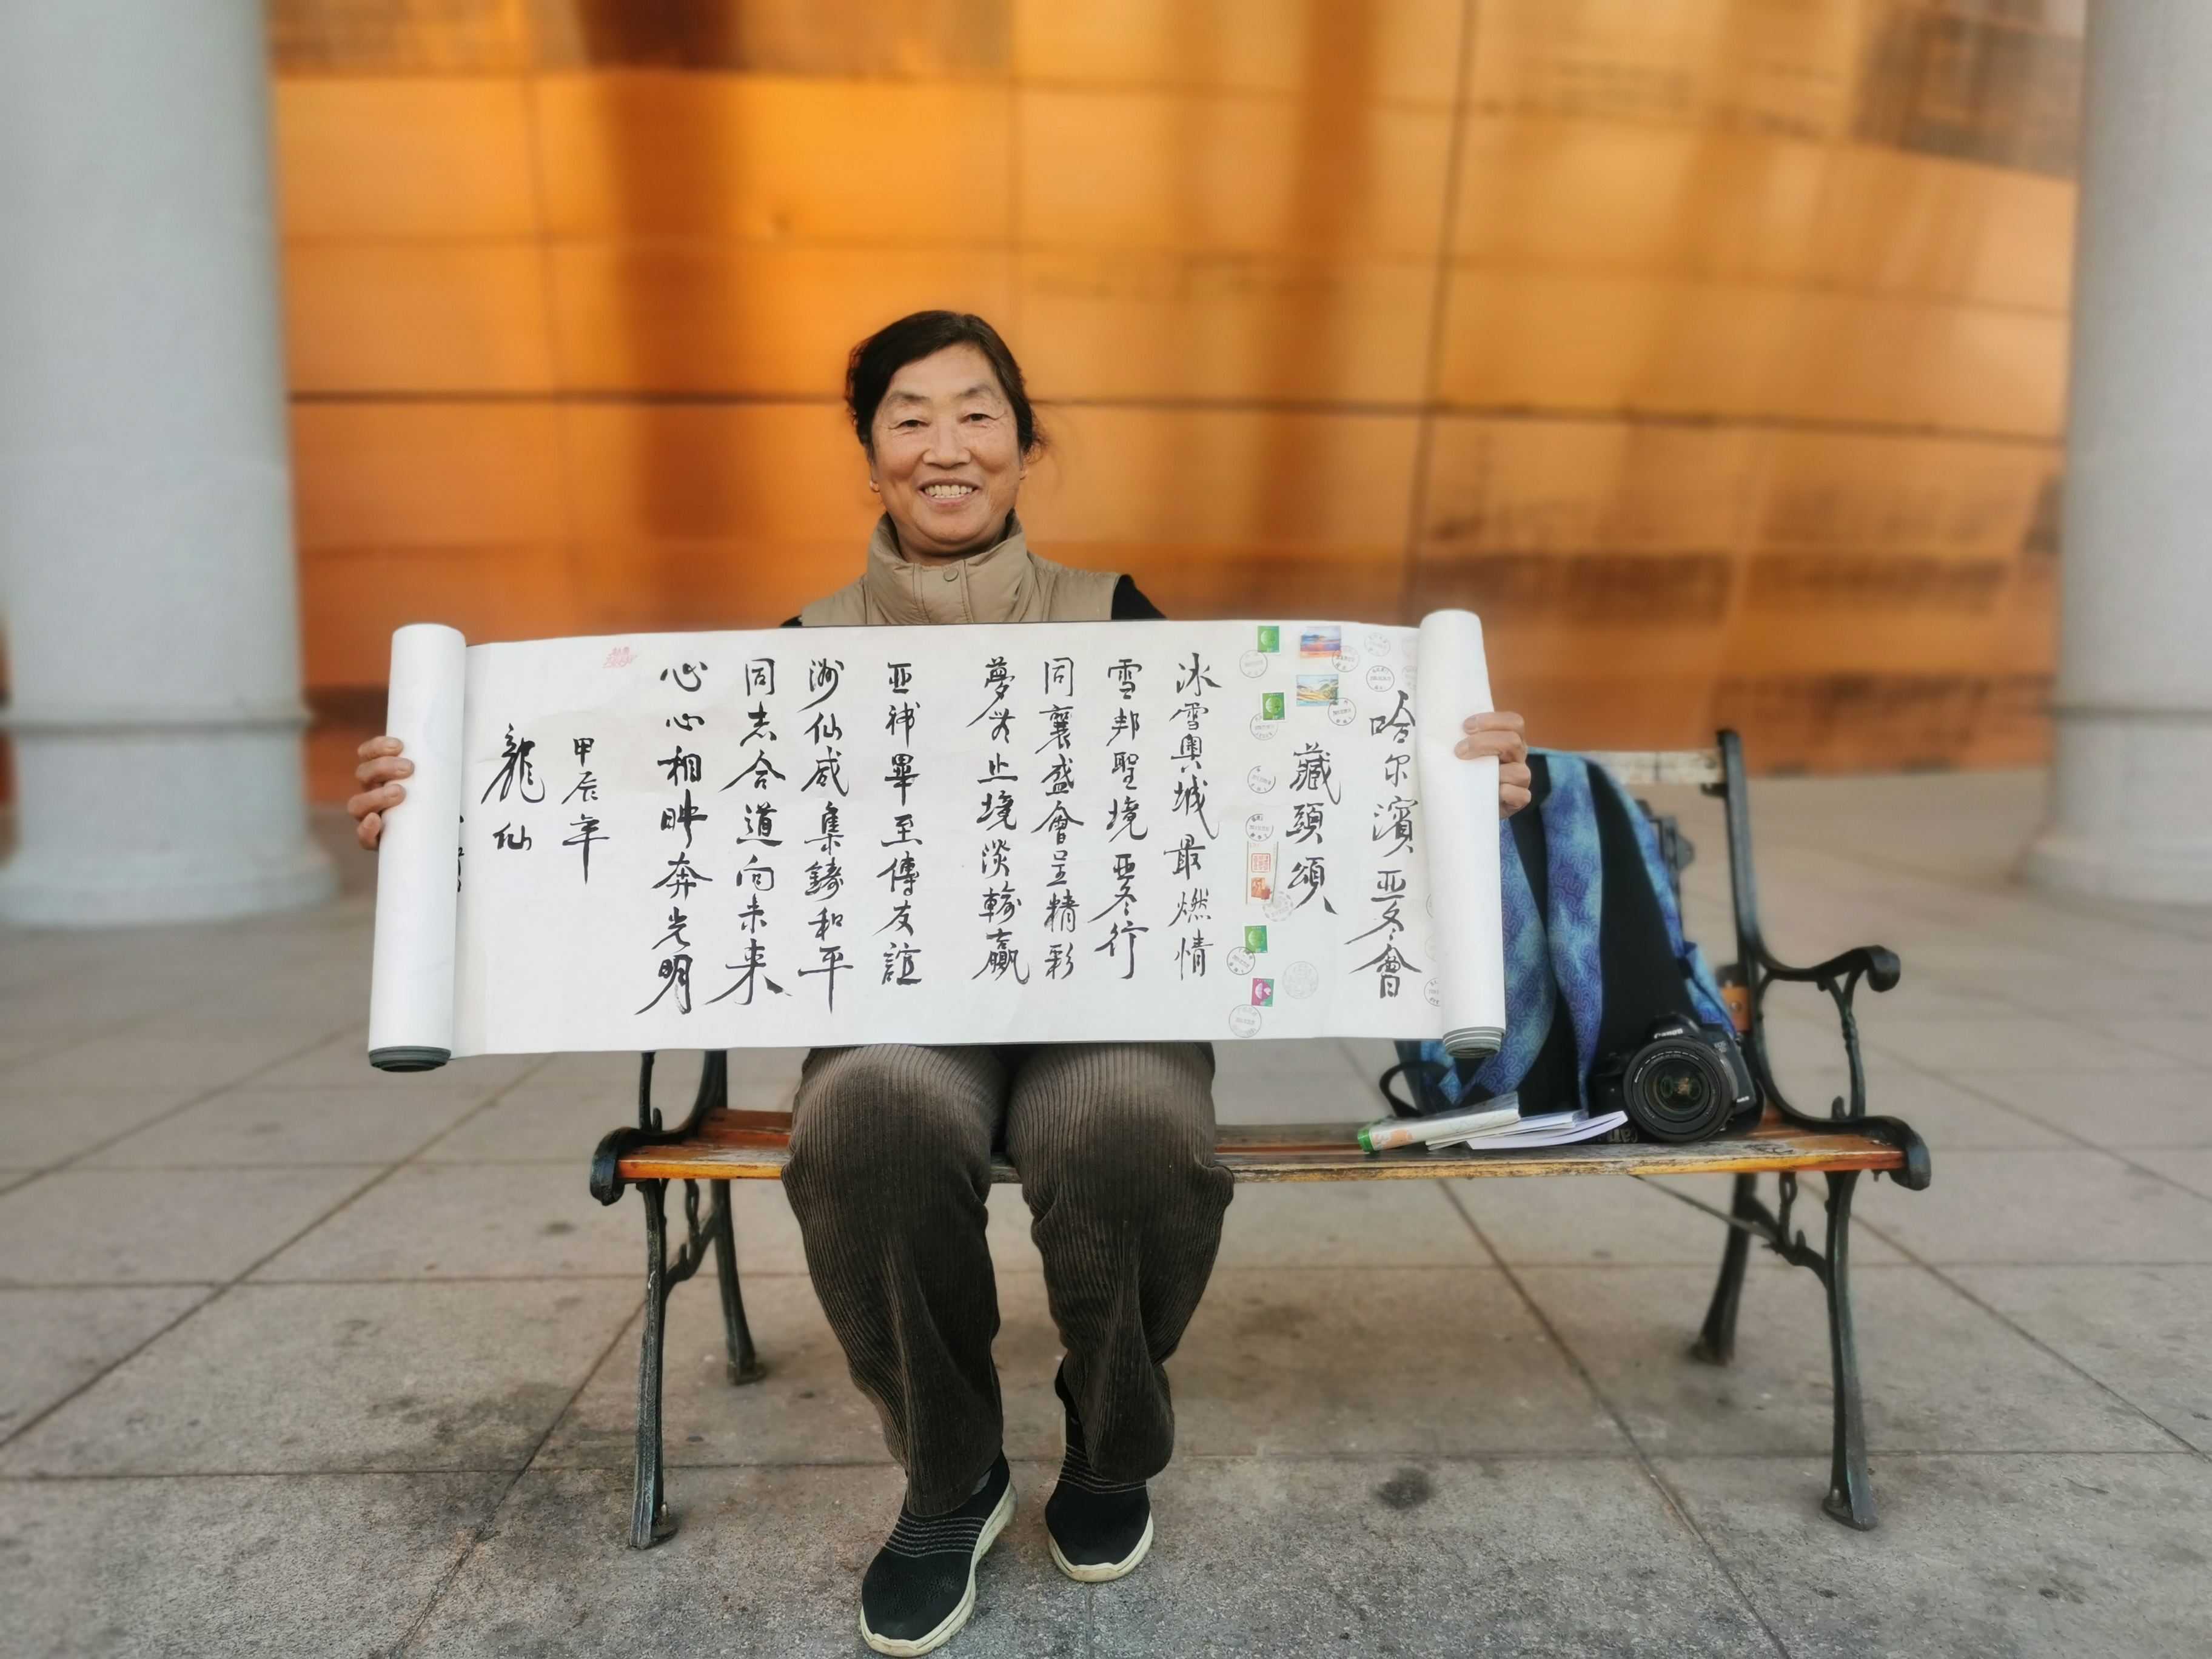 哈尔濱亚冬會
藏頭頌
冰雪奥城最燃情
雪邦聖境亚冬行
同襄盛會呈精彩
夢無止境淡輸贏
亚神畢至傳友誼
洲仙咸集鑄和平
同志合道向未来
心心相映奔光明
甲辰年
龍仙